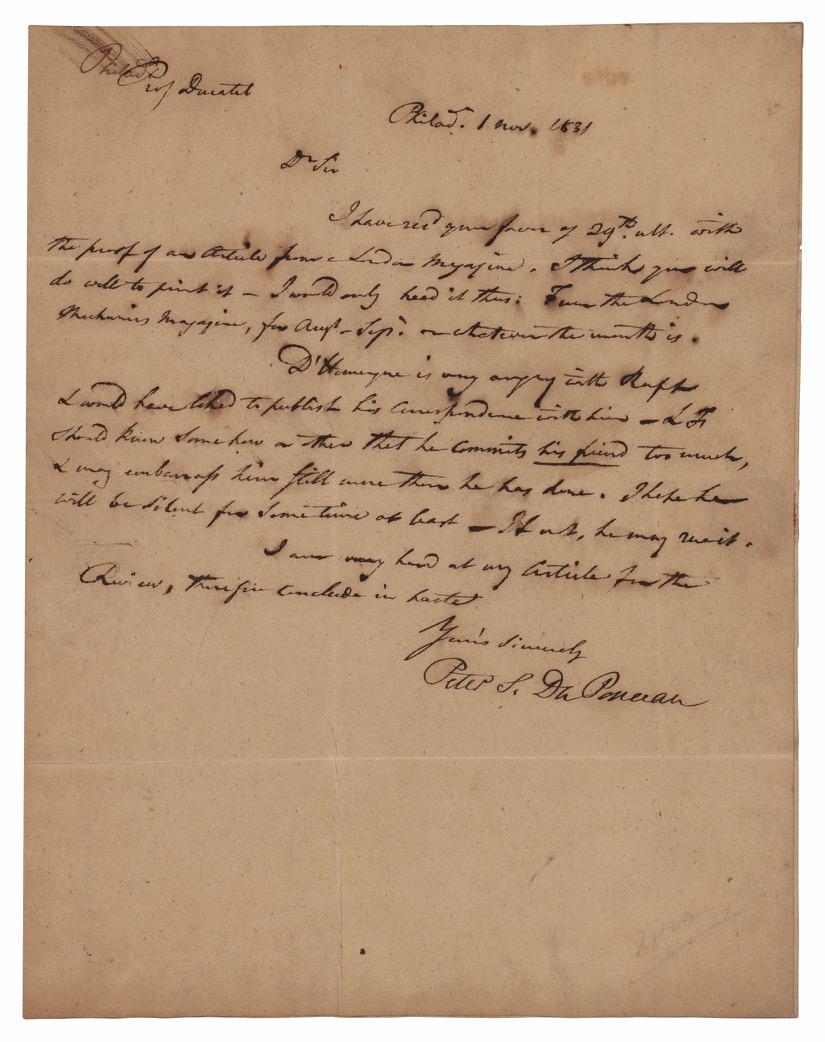 Philad
Prof Ducatel
Philad. 1 nov. 1831
Dr Sir
I have recd your favor of 29th ult. with
the proof of an Article from a London Magazine. I think you will
do well to print it – I would only head it thus: From the London
Mechanics Magazine, for Augt – Sepr. or whatever the month is.
D'Homergue is very angry with
& would have liked to publish his Correspondence with him –
should know some how or other that he commits his friend too much,
& may embarrass him still more than he has done. I hope he
will be silent for some time at least – If not, he may
I am very hard at my Article for the
Review, therefore conclude in haste
Yours sincerely
Peter S. Du Ponceau